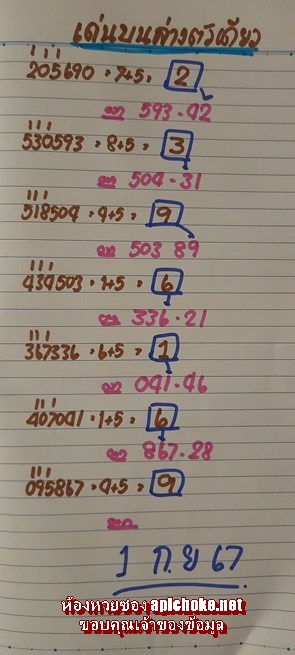 เด่นบนล่างตัวเดียว
205690 = 7+5 = 2
ออก 593-42
530593 = 8+5 = 3
ออก 504-31
518504 = 4+5 = 9
ออก 503 89
434503 = 1+5 = 6
ออก 336-21
367336 = 6+5 = 1
ออก 041-46
407041 = 1+5 = 6
ออก 867-28
095867 = 4+5 = 9
ออก
1 ก.ย 67
ห้องหวยซอง apichoke.net
ขอบคุณเจ้าของข้อมูล